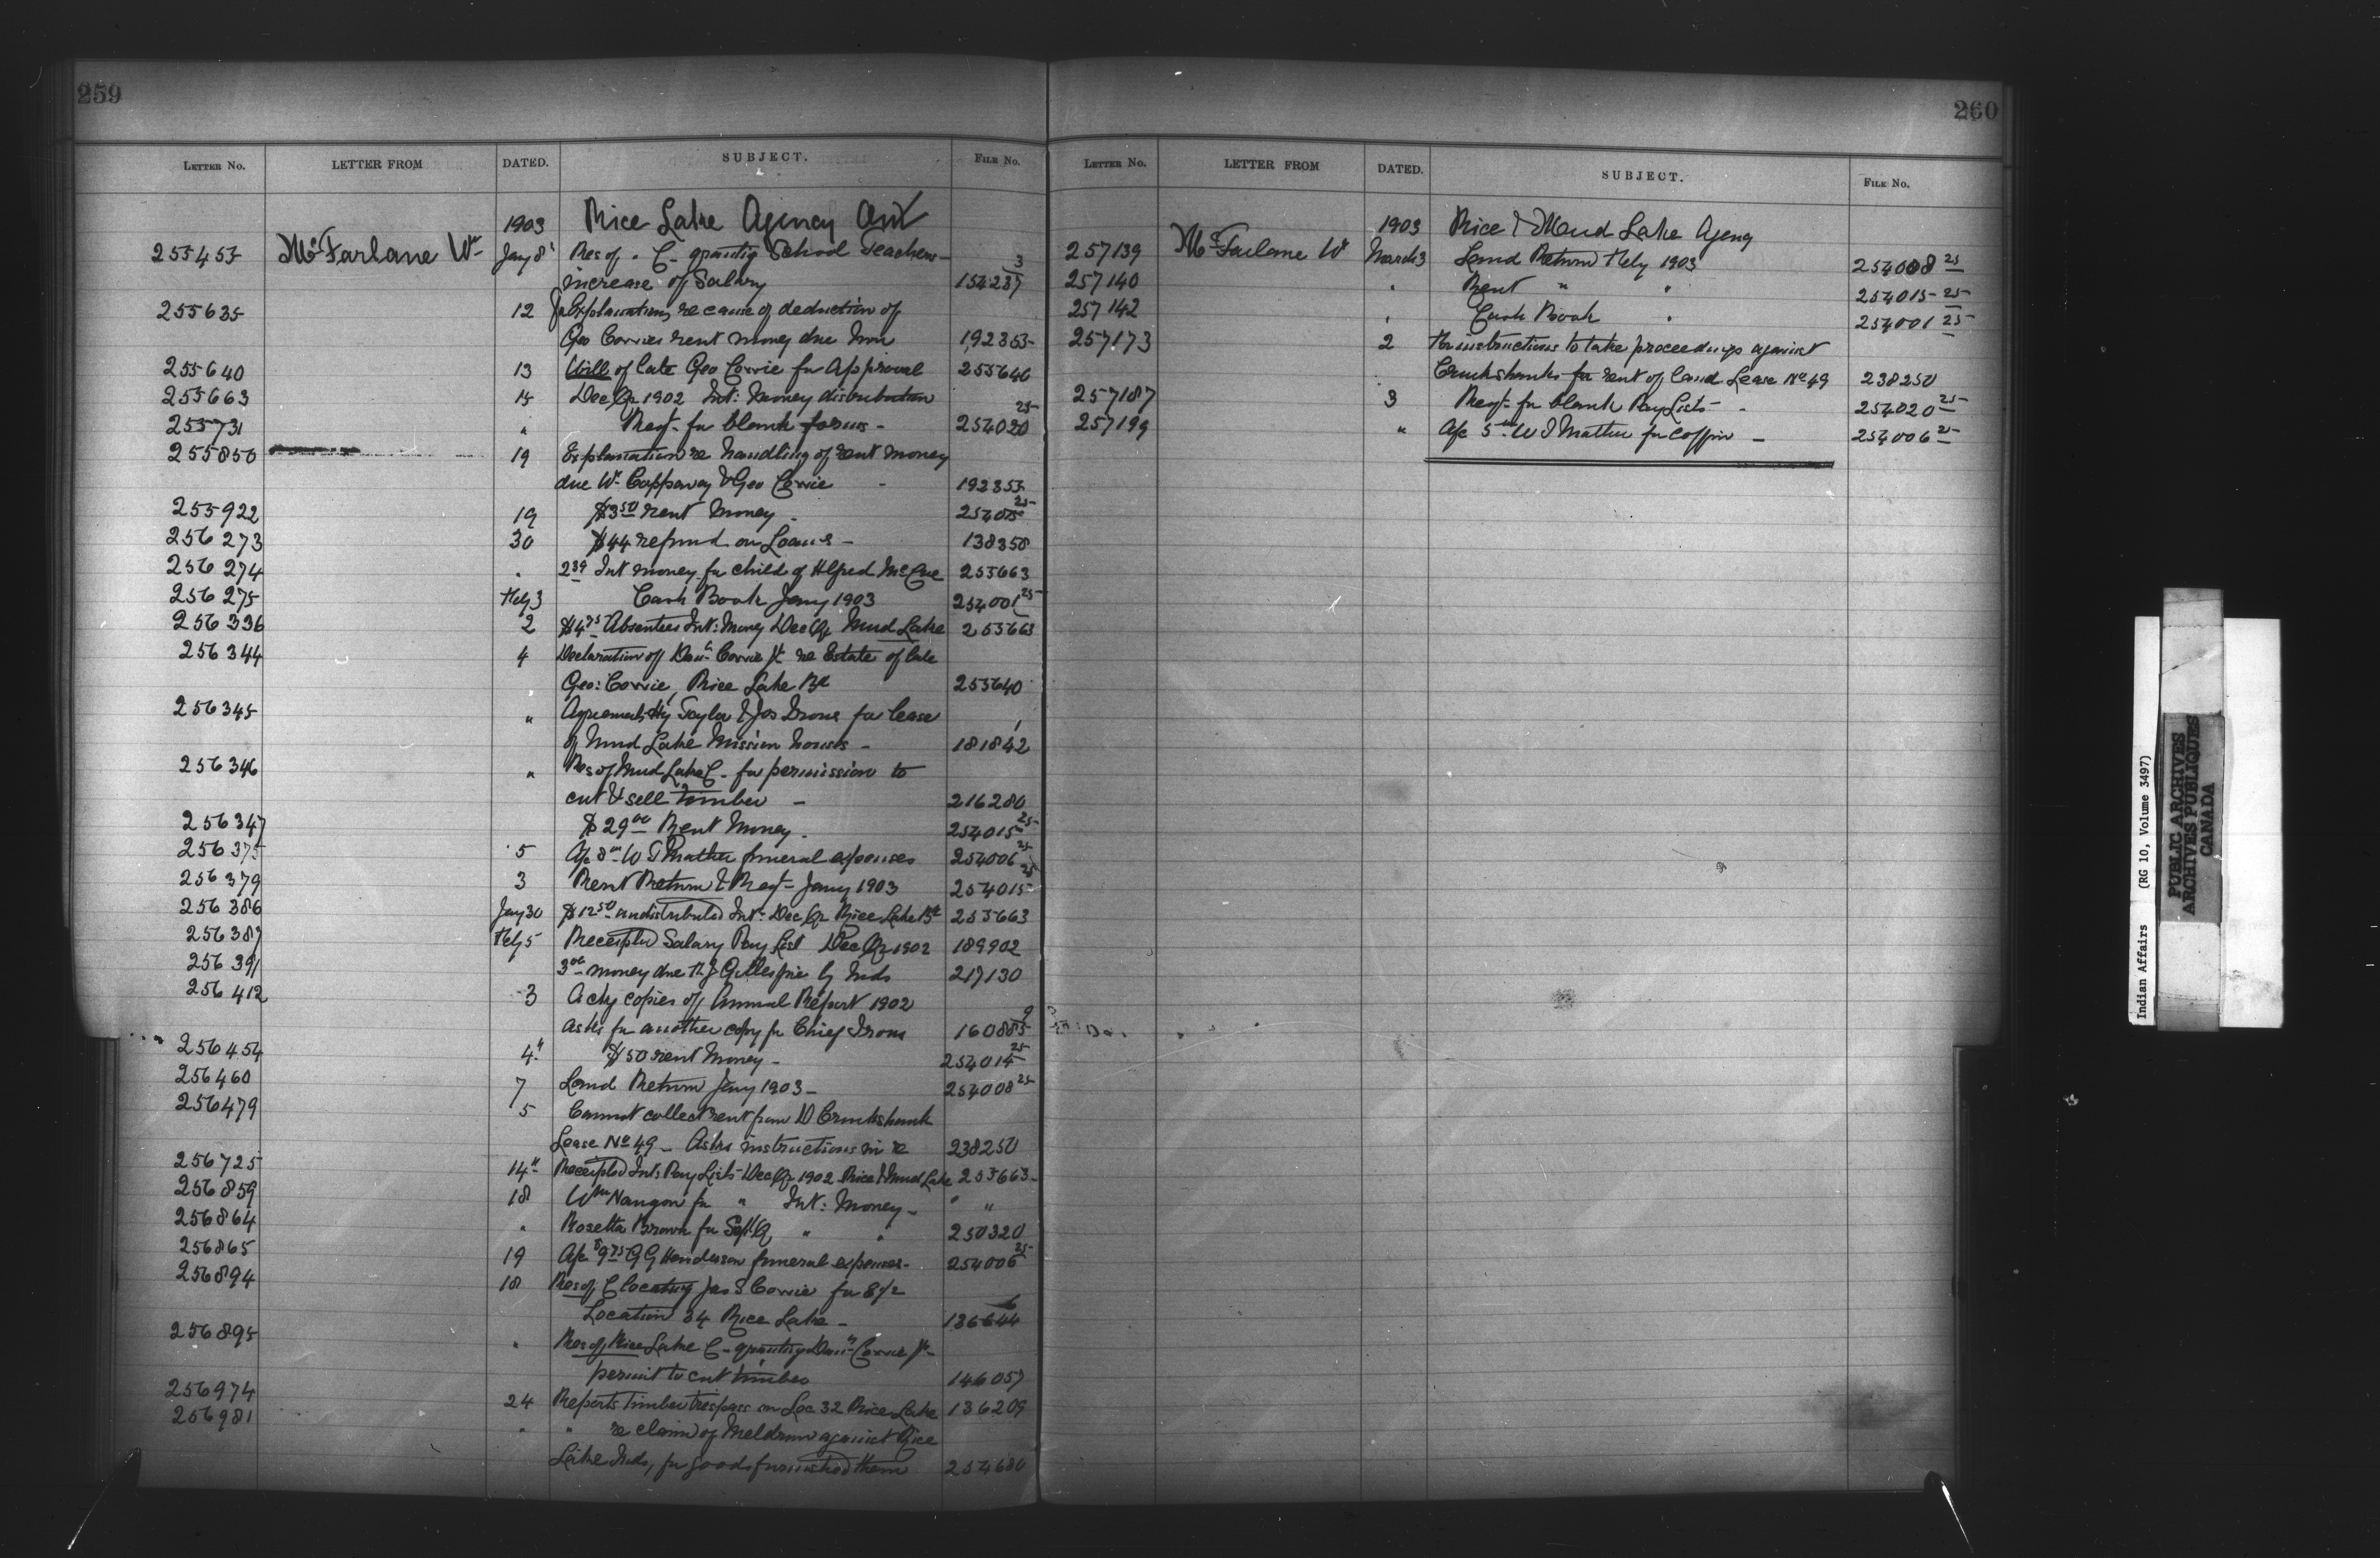 259
LETTER NO. LETTER FROM DATED. SUBJECT. FILE No.
1903 Rice Lake Agency Ont
255453 McFarlane Wm Jany 8 Res of C. granting School Teachers
increase of Salary 154237 3
255635 12 Explanations re cause of deduction of
Geo Cowies rent money due him 192353
255640 13 Will of late Geo Cowie for Approval 255640
255663 14 Dec Qr 1902 Int: Money distribution
255731 " Reqt for blank forms - 254020 25
255850 19 Explanation re handling of rent money
due Wm Cappaway & Geo Cowie - 192353
255922 19 $3 50 rent Money - 254015 25
256273 30 $44 refund on Loans - 138358
256274 " 2 39 Int money for child of Alfred McCue 255663
256275 Feby 3 Cash Book Jany 1903 254001 25
256336 2 $4 75 Absentees Int: Money Dec Qr Mud Lake 255663
256344 4 Declaration of Danl Cowie Jr re Estate of late
Geo: Cowie, Rice Lake Bd 255640
256345 " Agreement Hy Taylor & Jos Irons for lease
of Mud Lake Mission houses - 181842 1
256346 " Res of Mud Lake C. for permission to
cut & sell timber - 216280
256347 $29 00 Rent Money - 254015 25
256375 5 A/c 8 00 W J Mather funeral expenses 254006 25
256379 3 Rent Return & Reqt Jany 1903 254015 25
256386 Jany 30 $12 50 undistributed Int: Dec Qr Rice Lake Bd 255663
256387 Feby 5 Receipted Salary Pay List Dec Qr 1902 189902
256391 3 00 money due Gillespie by Inds 217130
256412 3 Ackg copies of Annual Report 1902
asks for another copy for Chief Irons 160885 9
256454 4th $50 rent Money - 254014 25
256460 7 Land Return Jany 1903 - 254008 25
256479 5 Cannot collect rent from D Cruikshank
Lease No 49 - Asks instructions in re 238250
256725 14th Receipted Int: Pay Lists Dec Qr 1902 Rice & Mud Lake 255663
256859 18 Wm Naugon for " Int: Money - " "
256864 " Rosetta Brown for Sept Qr " " 250320
256865 19 A/c $9 75 G G Henderson funeral expenses - 254006 25
256894 18 Res of C locating Jas S Cowie for E 1/2
Location 34 Rice Lake - 136644 6
256895 " Res of Rice Lake C - granting Danl Cowie Jr
permit to cut timber 146057
256974 24 Reports timber trespass on Loc 32 Rice Lake 136209
256981 " " re claim of Meldrum against Rice
Lake Inds, for goods furnished them 254680
260
LETTER NO. LETTER FROM DATED. SUBJECT. FILE No.
1903 Rice & Mud Lake Agency
257139 McFarlane Wm March 3 Land Return Feby 1903 254008 25
257140 " Rent " " 254015 25
257142 " Cash Book " 254001 25
257173 2 For instructions to take proceedings against
Cruikshanks for rent of land Lease No 49 238250
257187 3 Reqt for blank Pay Lists - 254020 25
257199 " A/c 5 00 W J Mather for coffin - 254006 25
Indian Affairs (RG 10, Volume 3497)
PUBLIC ARCHIVES
ARCHIVES PUBLIQUES
CANADA